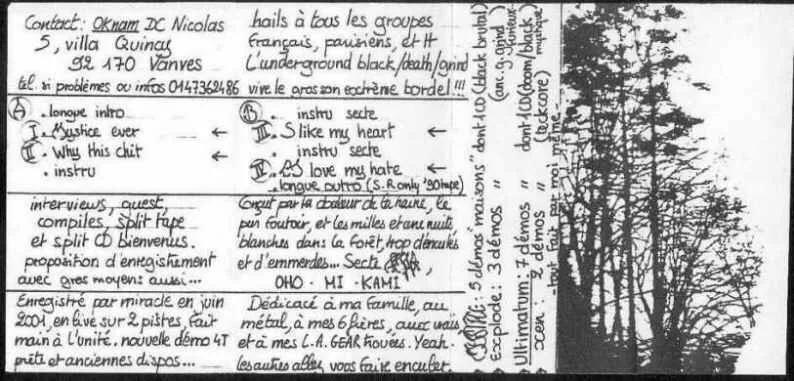 Contact: OKnam DC Nicolas
5, villa Quincy
92 170 Vanves
tel. si problèmes ou infos 0147362486
hails à tous les groupes
Français, parisiens, et !!
L'underground black/death/grind
vive le gros son extrème bordel!!!
A . longue intro
I. Mystice ever ←
II. Why this chit ←
. instru
B . instru secte
III. S like my heart ←
. instru secte
IV. LS love my hate ←
. longue outro (S.R only '90 tape)
interviews, quest,
compiles, split tape
et split CD bienvenus.
proposition d'enregistrement
avec gros moyens aussi...
Conçut par la douleur de la haine, le
pur foutoir, et les milles et une nuits
blanches dans la Forêt, trop d'enculés
et d'emmerdes... Secte
OHO · MI · KAMI
Enregistré par miracle en juin
2001, en live sur 2 pistes, fait
main à l'unité. nouvelle démo 4T
prête et anciennes dispos...
Dédicacé à ma famille, au
métal, à mes 6 frères, aux vrais
et à mes L.A. GEAR trouées. Yeah.
les autres allez vous faire enculer.
: 5 démos "maisons" dont 1 CD (black brutal)
Explode: 3 démos " (anc. g. grind
Ultimatum: 7 démos " dont 1 CD (doom/black
mystique)
xcen: 2 démos " (teckcore)
-tout fait par moi même-